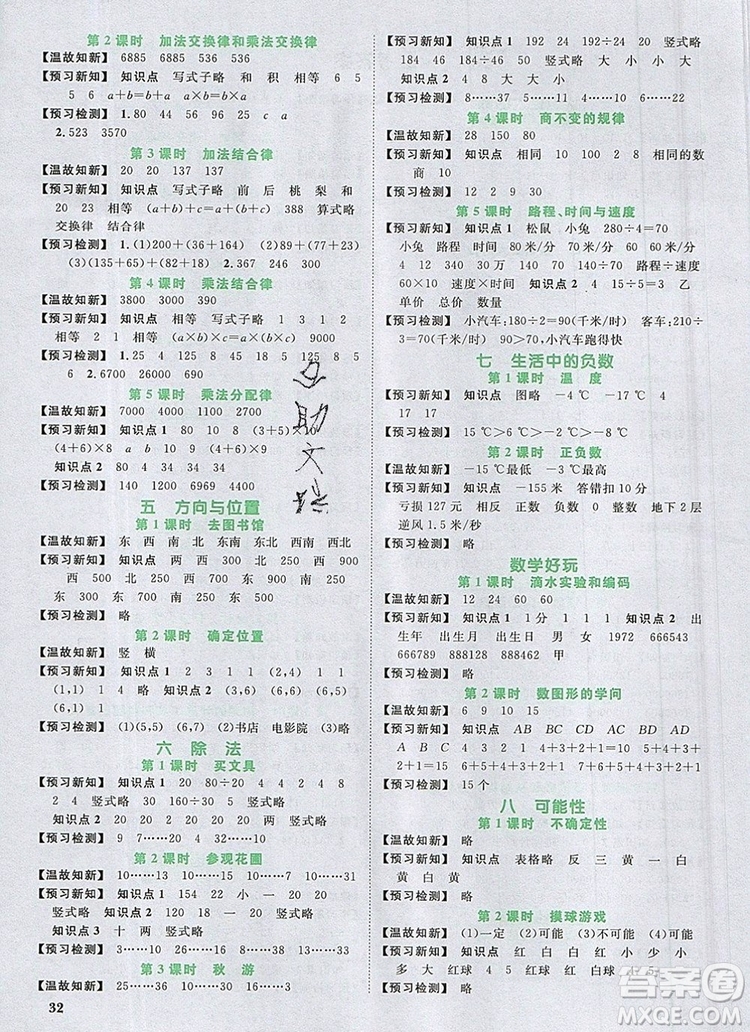 第2课时 加法交换律和乘法交换律
【温故知新】 6885 6885 536 536
【预习新知】 知识点 写式子略 和 积 相等 6 5
5 6 a+b=b+a a×b=b×a
【预习检测】 1.80 44 56 96 25 c a
2.523 3570
第3课时 加法结合律
【温故知新】 20 20 137 137
【预习新知】 知识点 写式子略 前 后 桃 梨 和
20 23 相等 (a+b)+c=a+(b+c) 388 算式略
交换律 结合律
【预习检测】 1.(1)200+(44+56) (2)89+(77+23)
(3)(135+65)+(18+82) 2.367 246 300
第4课时 乘法结合律
【温故知新】 3800 3000 390
【预习新知】 知识点 相等 写式子略 1 3 1 2
相等 2 1 (a×b)×c=a×(b×c)
【预习检测】 1.25 4 125 8 45 8 125 4 8
2 6 2.6700 26000 14000
第5课时 乘法分配律
【温故知新】 7000 4000 1100 2700
【预习新知】 知识点1 80 80 8+5 (3+5)×10
(4+6)×8 a b c 知识点2 (80+4)×25
(4+6)×8 知识点2 80 4 34 34
【预习检测】 68 32 101 1 2 34 8200
五 方向与位置
第1课时 去图书馆
【温故知新】 东 西 南 北 东南 东北 西南 西北
【预习新知】 知识点 两 西 300 两 北 300
西 800 南 500 西 200 西 北 500
东 300 东 700 南 500 东 500
【预习检测】 略
第2课时 确定位置
【温故知新】 竖 横
【预习新知】 知识点1 2 3 1 1 (2,4) 1 1
(1,1) 1 4 略 知识点2 (3,6) (6,6) (6,5)
(6,1)
【预习检测】 (1)(5,5) (6,7) (2)书店 电影院 (3)略
六 除法
第1课时 买文具
【预习新知】 知识点1 20 80÷20 4 2 8 4 4
2 4 竖式略 30 160÷30 5 竖式略
知识点2 20 20 2 0 20 2 竖式略
【预习检测】 9……7 20 4……32 10……8
第2课时 参观花圃
【温故知新】 10……13 10……15 10……33 10……31
【预习新知】 知识点1 154 22 小 一 20 20
竖式略 知识点2 120 18 18 一 20 6 20
知识点3 十 两 竖式略
【预习检测】 3……10 5……23 8……36 10……10
第3课时 秋游
【温故知新】 25……36 10……16 6……3
32
【预习新知】 知识点1 192 24 192÷24 竖式略
184 46 184÷50 竖式略 知识点2 大 小 大
小 大 大 小
【预习检测】 7……34 6……22 10……4 6……22
第4课时 商不变的规律
【温故知新】 28 150 80
【预习新知】 知识点 相同 相同 10 100 除数
商 10
【预习检测】 12 2 9 30
第5课时 路程、时间与速度
【预习新知】 知识点1 松鼠 小兔 280÷4=70
小兔 路程 时间 80米/分 70米/分 80米/分 70米/分
知识点2 4 12 240÷4=60 240÷12=20 路程÷速度
60×10 速度×时间 知识点2 4 2 15÷5=3 乙
单价 总价 数量
【预习检测】 小汽车:180÷2=90(千米/时) 客车:210÷
3=70(千米/时) 90>70 小汽车跑得快
七 生活中的负数
第1课时 温度
【预习新知】 知识点 图略 -4℃ -17℃ 4
17 17
【预习检测】 15℃>6℃>-2℃>-8℃
第2课时 正负数
【温故知新】 -15℃最低 -3℃最高
【预习新知】 知识点 -155米 答错扣10分
亏损127元 相反 正数 负数 0 负数 地下2层
逆风1.5米/秒
【预习检测】 略
数学好玩
第1课时 滴水实验和编码
【温故知新】 12 24 60 60
【预习新知】 知识点1 1分 略 知识点2 出
生年 出生月 出生日 男 女 1972 666543
666789 888888 888888 甲
【预习检测】 略
第2课时 数图形的学问
【温故知新】 6 9 10 15
【预习新知】 知识点 AB BC CD AC BD AD
A B C 4+3+2+1=10 5+4+3+2+1=15
【预习检测】 15个
八 可能性
第1课时 不确定性
【温故知新】 略
【预习新知】 知识点 表格略 反 三 黄 一 白
黄白 黄白
【预习检测】 略
第2课时 摸球游戏
【温故知新】 (1)一定 (2)可能 (3)不可能 (4)可能
【预习新知】 知识点 红白 白白 红 小 少 小
多 大 红球 4 白球 1 红 白 红球 白球 大
【预习检测】 略
互助文档
答案圈
MXQE.COM